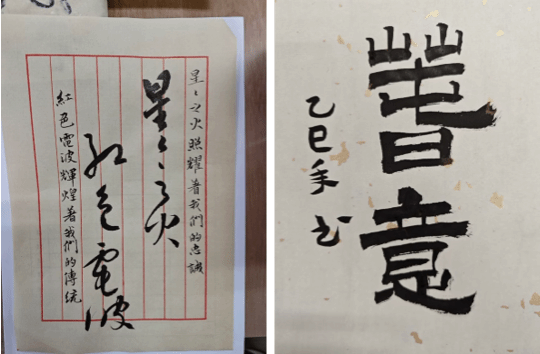 星〻之火照耀著我們的忠誠
星〻之火
红色電波
紅色電波輝煌著我們的傳統
萅意
乙巳年书